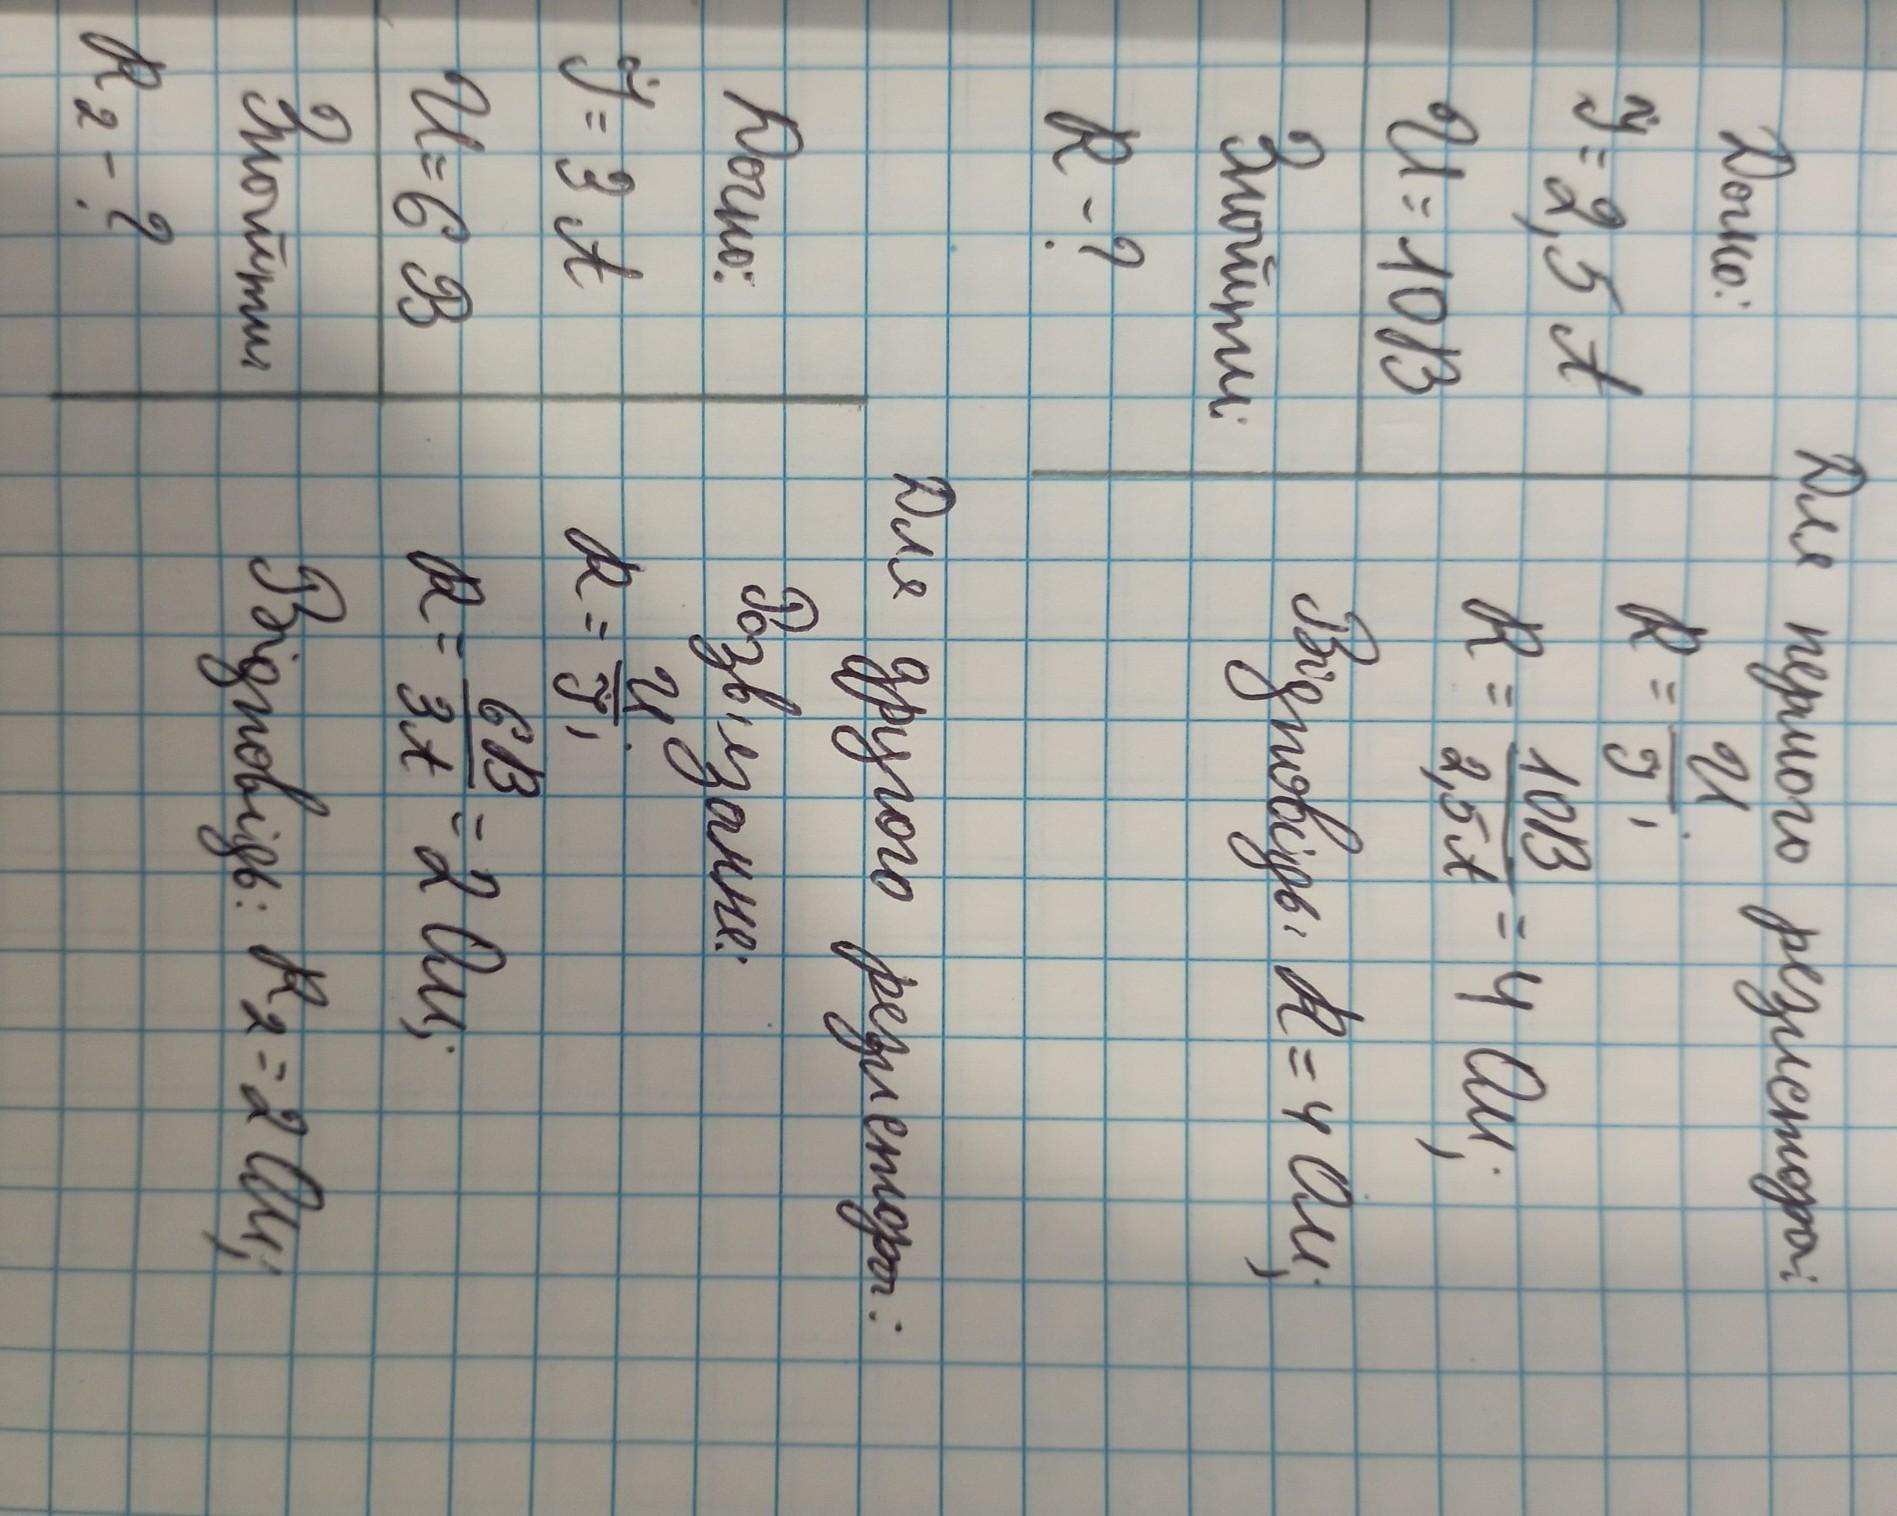 Для першого резистора:
Дано:
I = 2,5 А
U = 10В
Знайти:
R - ?
R = U/I;
R = 10В/2,5А = 4 Ом;
Відповідь: R = 4 Ом;
Для другого резистора:
Дано:
I = 3 А
U = 6 В
Знайти
R2 - ?
Розв'язання:
R = U/I;
R = 6В/3А = 2 Ом;
Відповідь: R2 = 2 Ом;